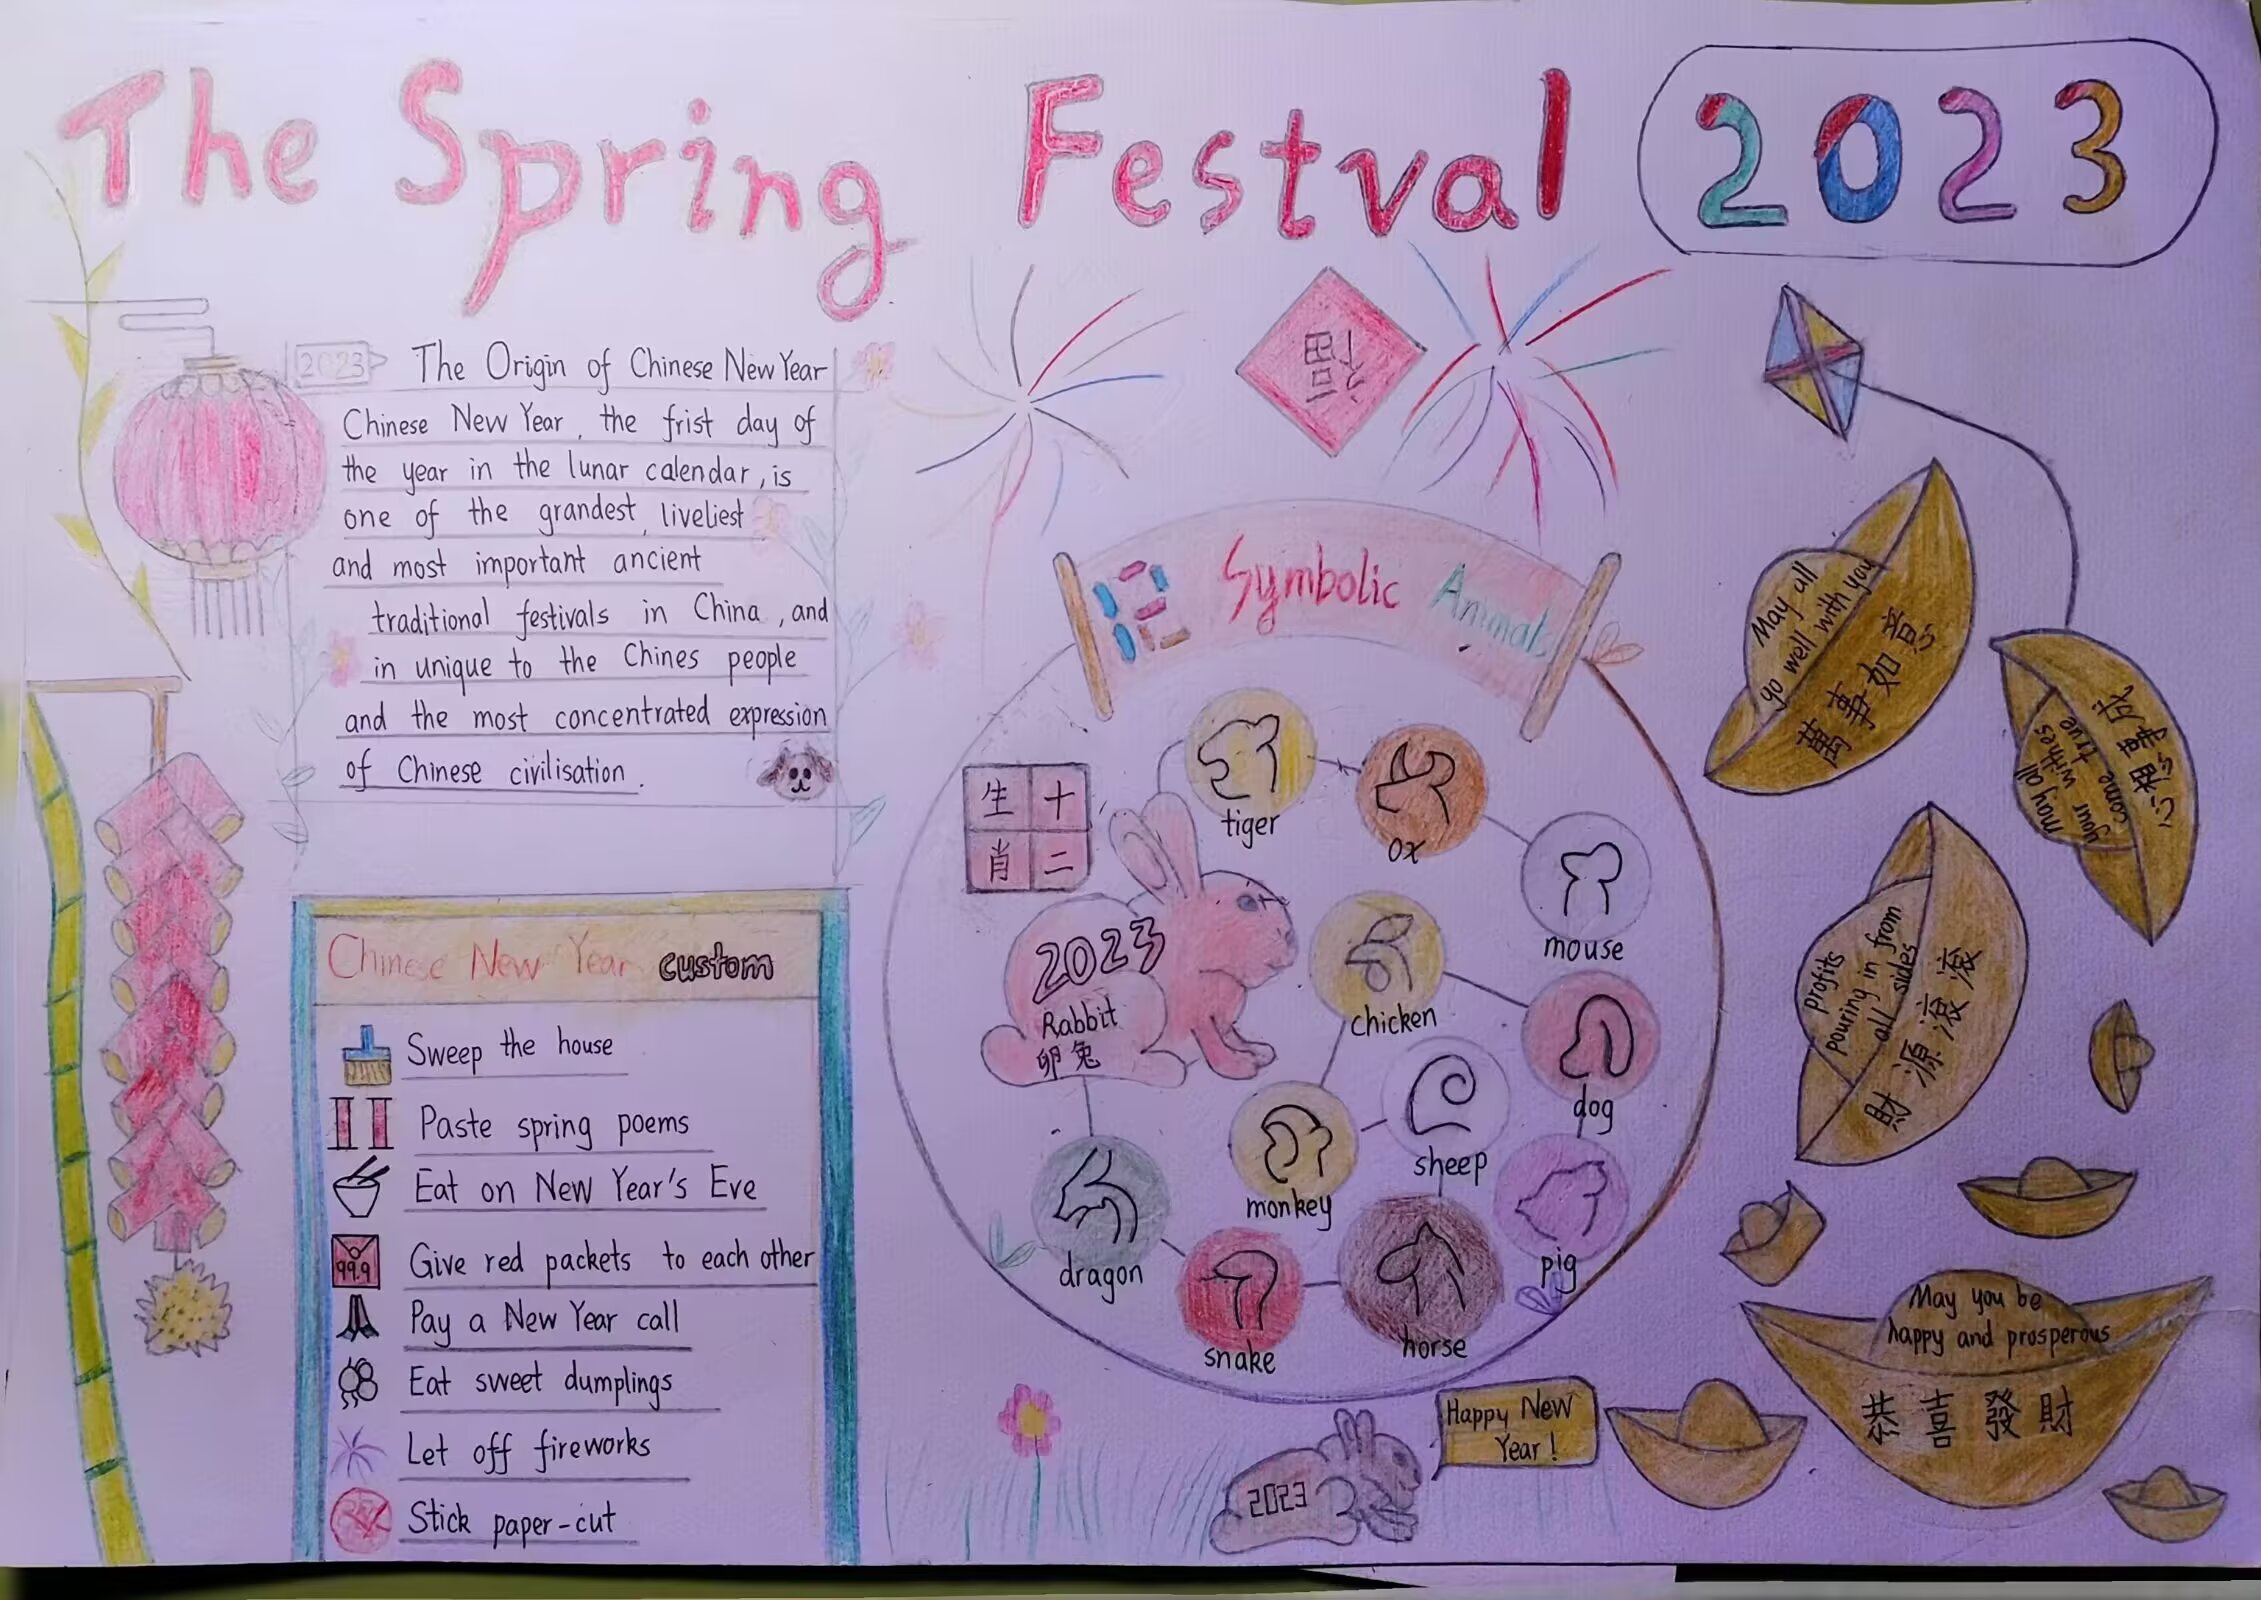 The Spring Festval 2023
2023 The Origin of Chinese New Year
Chinese New Year, the frist day of
the year in the lunar calendar, is
one of the grandest, liveliest
and most important ancient
traditional festivals in China, and
in unique to the Chines people
and the most concentrated expression
of Chinese civilisation.
Chinese New Year custom
Sweep the house
Paste spring poems
Eat on New Year's Eve
99.9
Give red packets to each other
Pay a New Year call
Eat sweet dumplings
Let off fireworks
Stick paper-cut
福
12 Symbolic Animals
生十
肖二
tiger
ox
mouse
2023
Rabbit
卯兔
chicken
dog
sheep
monkey
pig
dragon
snake
horse
2023
Happy New
Year!
May all
go well with you
萬事如意
may all
your withes
come true
心想事成
profits
pouring in from
all sides
財源滾滾
May you be
happy and prosperous
恭喜發財